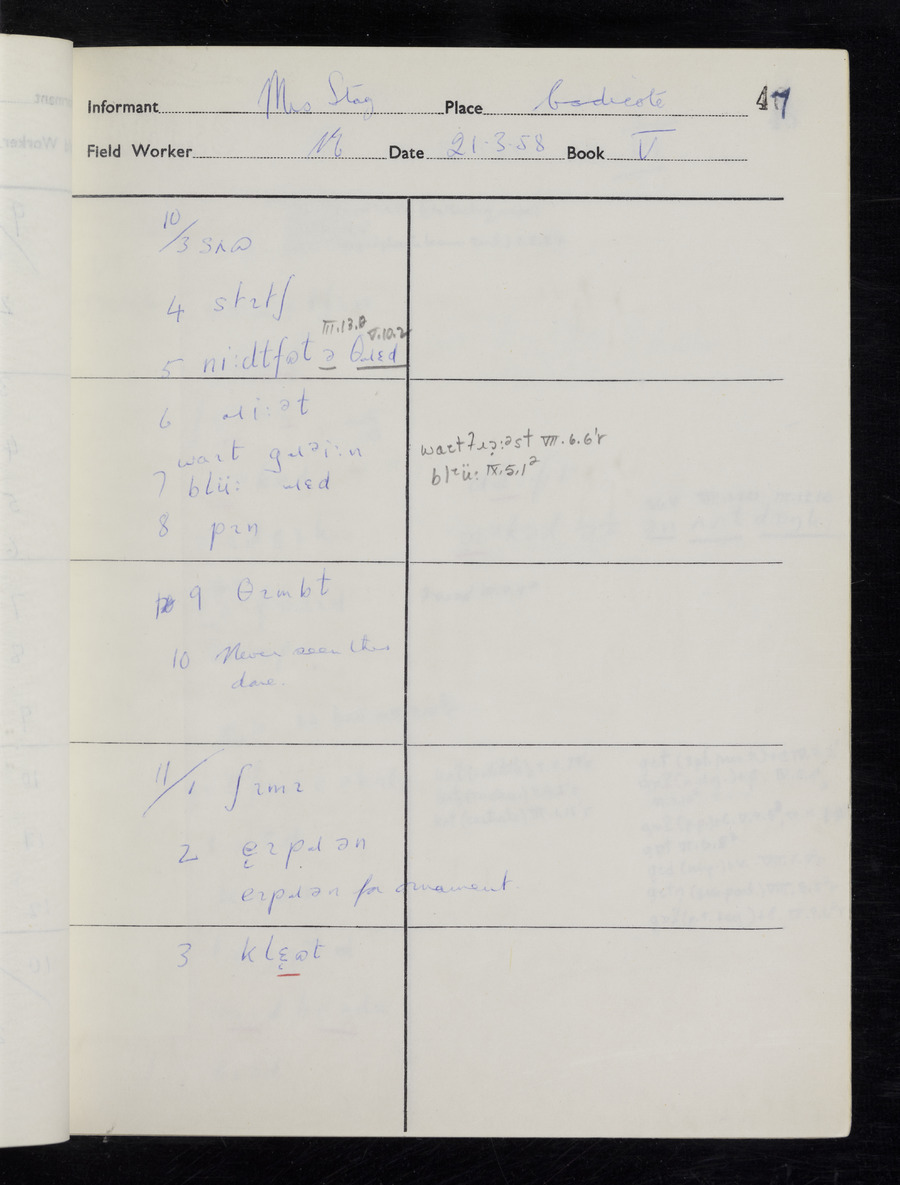 Informant Mrs Stag Place Bodicote 47
Field Worker Date 21.3.58 Book V
10/3 sʌɷ
4 stɪtʃ
III.13.8 V.10.2
5 ni:dtfɷt ə θɹɛd
6 ɹi:ət
waɪt gɹəi:n
waɪt
VII.6.6
7 blü: ɹɛd
blü: IX.5.1²
8 pɪn
9 θɪmbt
10 Never seen this
done.
11/1 ʃɪmɪ
2 ɛɪpɹən
eɪpɹən for ornament
3 klɛɷt